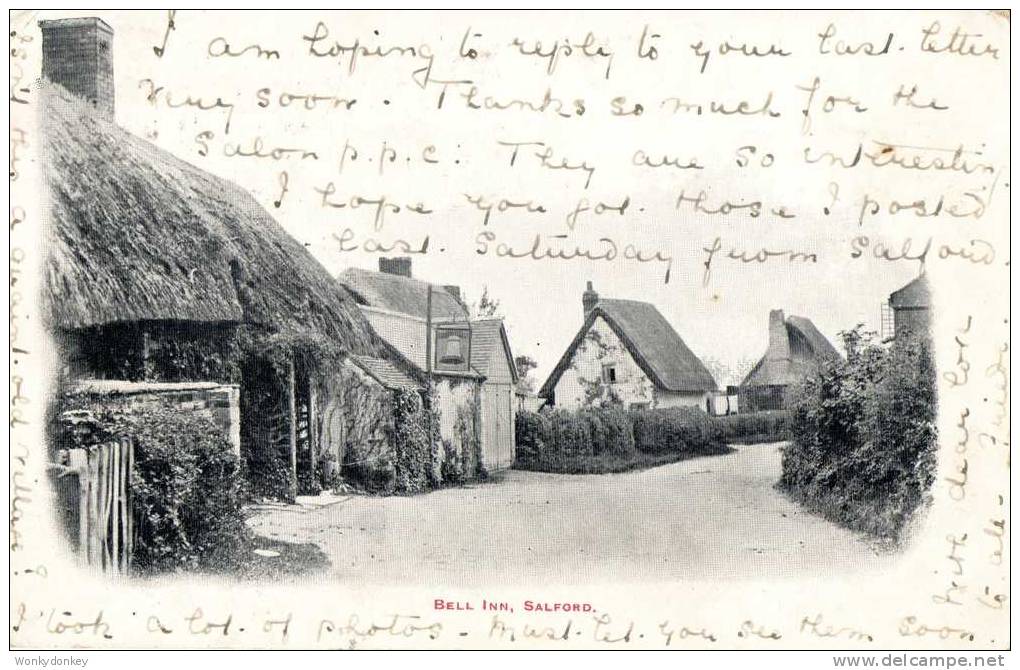 I am hoping to reply to your last letter
very soon. Thanks so much for the
Salon p.p.c: They are so interesting
I hope you got those I posted
last Saturday from Salford.
BELL INN, SALFORD.
I took a lot of photos - Must let you see them soon.
Isn't this a quaint old village?
With dear love
to all -
Wonkydonkey
http://www.delcampe.net